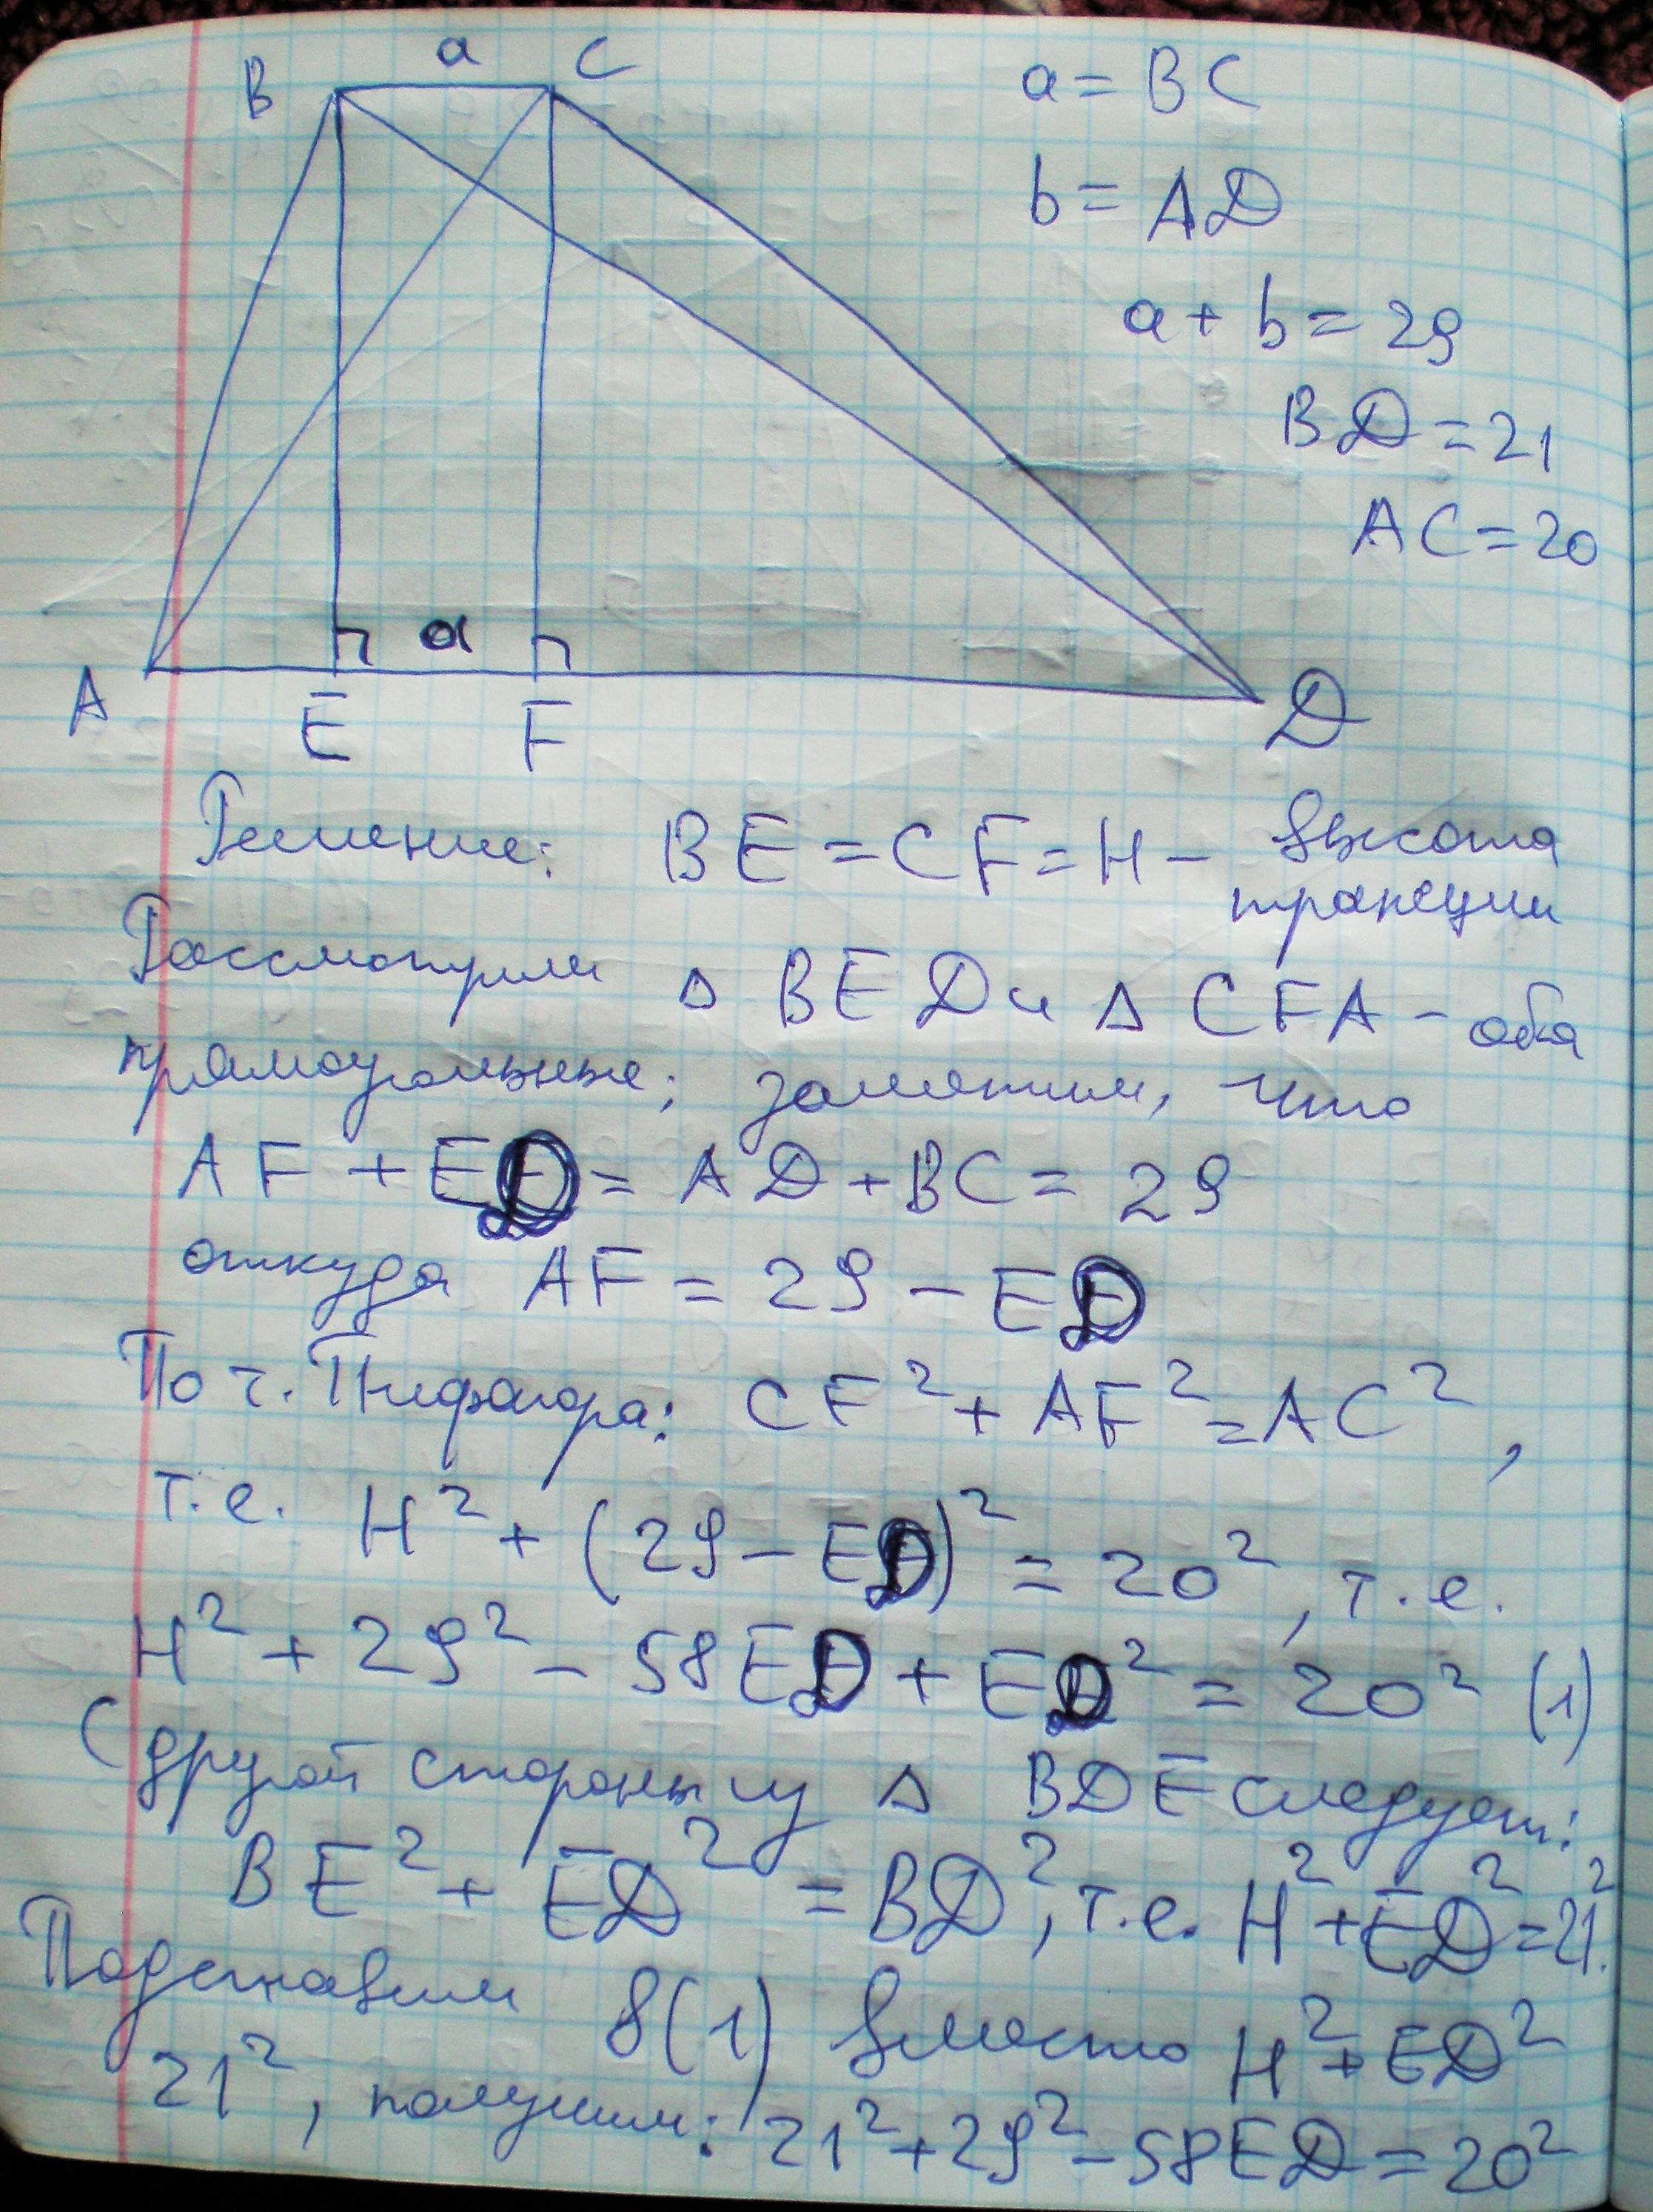 B a C
a = BC
b = AD
a + b = 29
BD = 21
AC = 20
a
A E F D
Решение: BE = CF = H – высота
трапеции
Рассмотрим Δ BED и Δ CFA – оба
прямоугольные; заметим, что
AF + ED = AD + BC = 29
откуда AF = 29 – ED
По т. Пифагора: CF² + AF² = AC²,
т.е. H² + (29 – ED)² = 20², т.е.
H² + 29² – 58ED + ED² = 20² (1)
С другой стороны из Δ BDE следует:
BE² + ED² = BD², т.е. H² + ED² = 21².
Подставим в (1) вместо H² + ED²
21², получим: 21² + 29² – 58ED = 20²